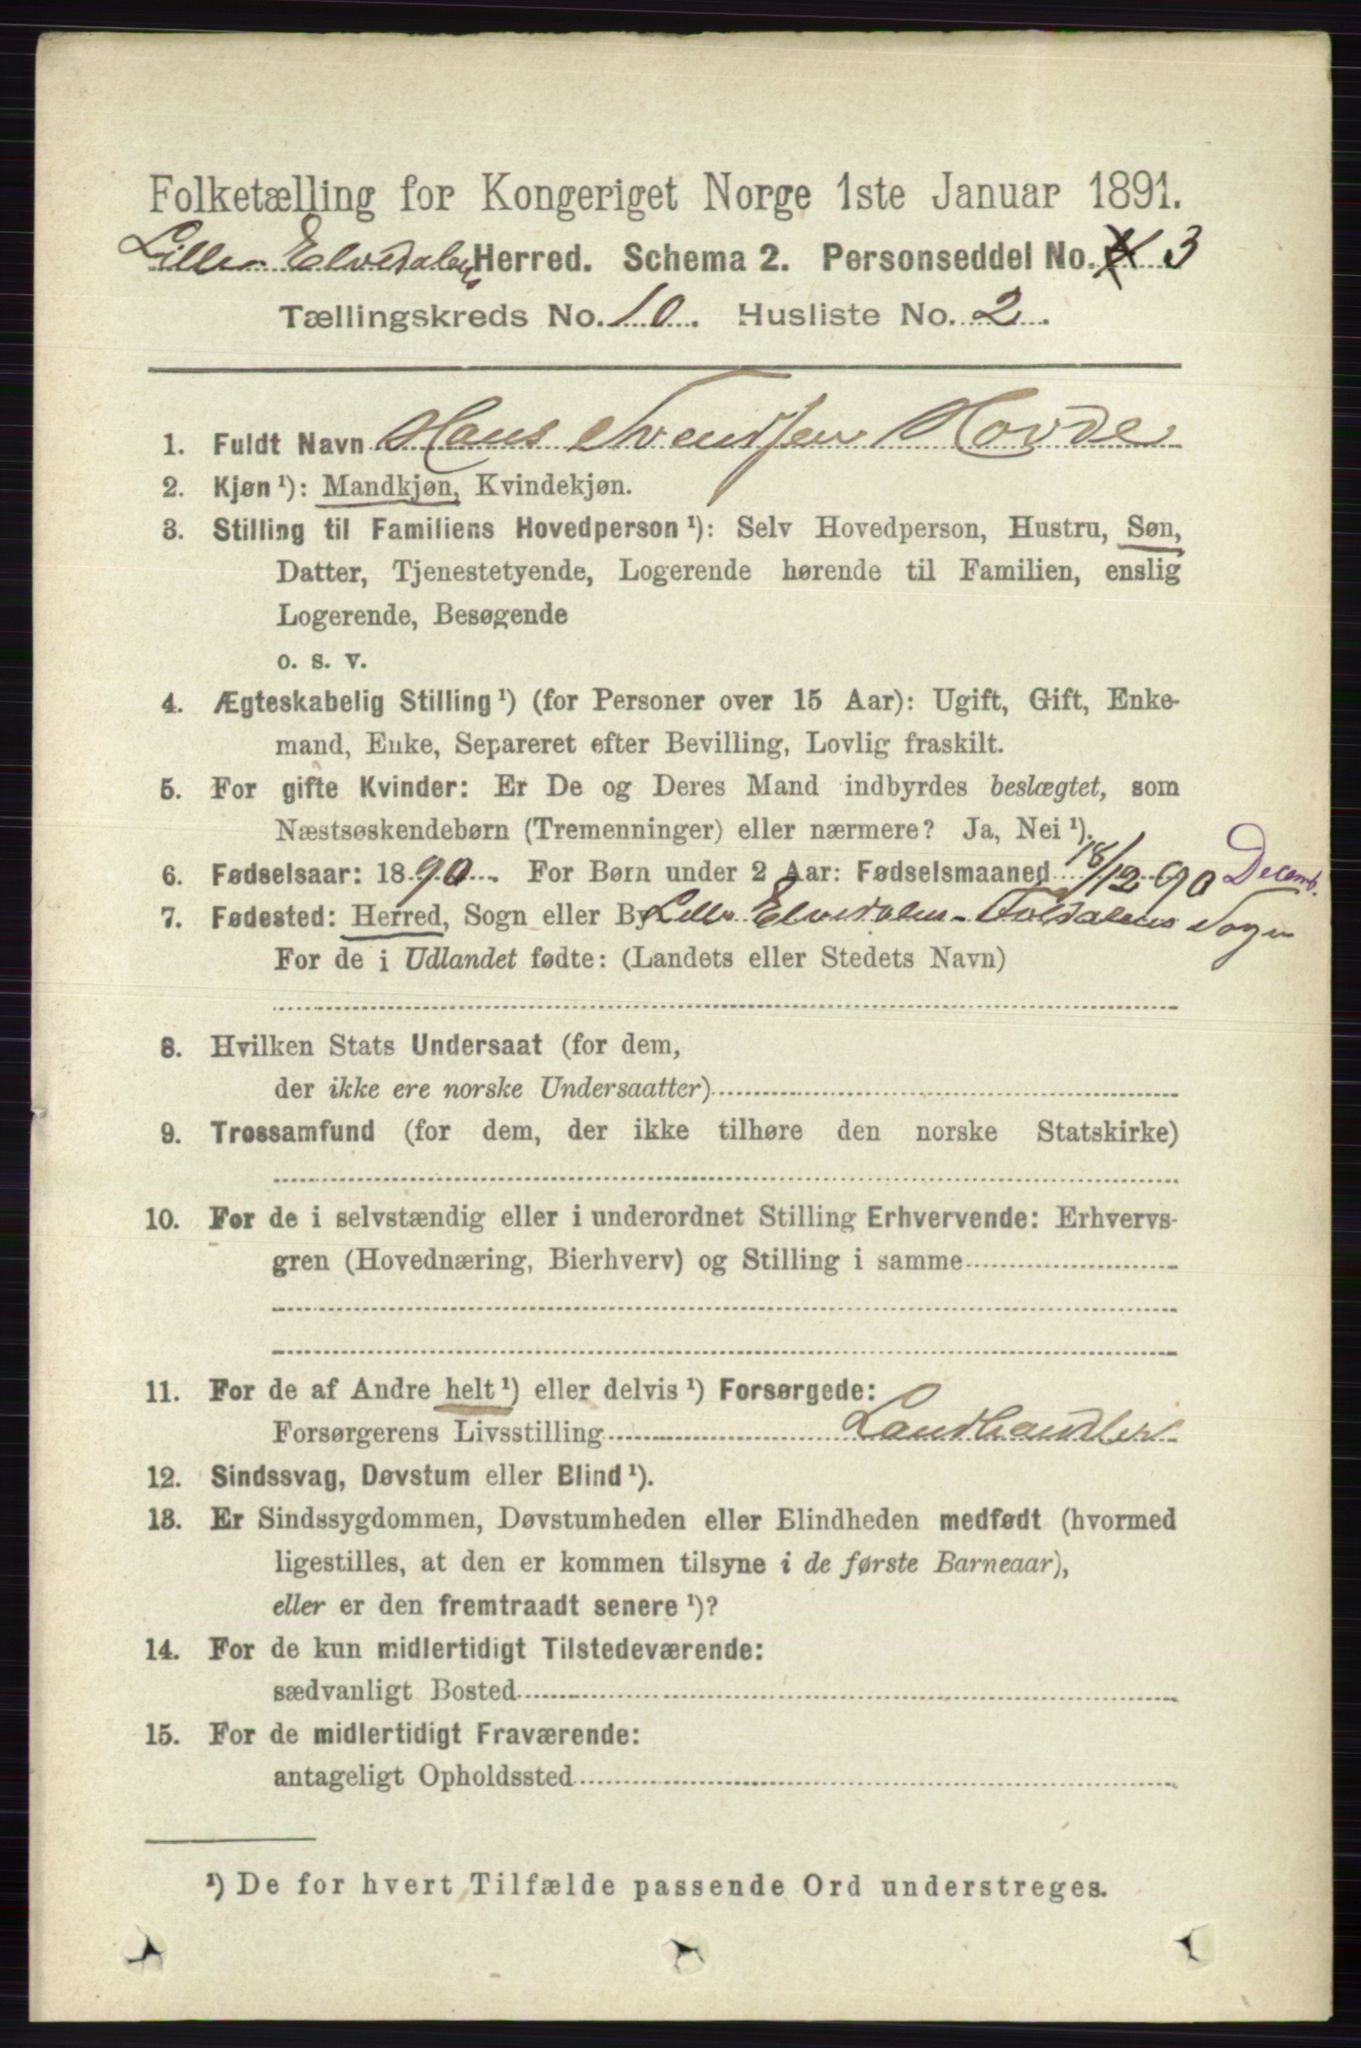 Folketælling for Kongeriget Norge 1ste Januar 1891.
Lille Elvedalens Herred. Schema 2. Personseddel No. 3
Tællingskreds No. 10. Husliste No. 2.
1. Fuldt Navn Hans Svendsen Hovde
2. Kjøn¹): Mandkjøn, Kvindekjøn.
3. Stilling til Familiens Hovedperson¹): Selv Hovedperson, Hustru, Søn,
Datter, Tjenestetyende, Logerende hørende til Familien, enslig
Logerende, Besøgende
o. s. v.
4. Ægteskabelig Stilling¹) (for Personer over 15 Aar): Ugift, Gift, Enke-
mand, Enke, Separeret efter Bevilling, Lovlig fraskilt.
5. For gifte Kvinder: Er De og Deres Mand indbyrdes beslægtet, som
Næstsøskendebørn (Tremenninger) eller nærmere? Ja, Nei¹).
6. Fødselsaar: 1890. For Børn under 2 Aar: Fødselsmaaned 18/12 90 Decemb.
7. Fødested: Herred, Sogn eller By Lille Elvedalen - Foldalens Sogn
For de i Udlandet fødte: (Landets eller Stedets Navn)
8. Hvilken Stats Undersaat (for dem,
der ikke ere norske Undersaatter)
9. Trossamfund (for dem, der ikke tilhøre den norske Statskirke)
10. For de i selvstændig eller i underordnet Stilling Erhvervende: Erhvervs-
gren (Hovednæring, Bierhverv) og Stilling i samme
11. For de af Andre helt¹) eller delvis¹) Forsørgede:
Forsørgerens Livsstilling Landhandler
12. Sindssvag, Døvstum eller Blind¹).
13. Er Sindssygdommen, Døvstumheden eller Blindheden medfødt (hvormed
ligestilles, at den er kommen tilsyne i de første Barneaar),
eller er den fremtraadt senere¹)?
14. For de kun midlertidigt Tilstedeværende:
sædvanligt Bosted
15. For de midlertidigt Fraværende:
antageligt Opholdssted
¹) De for hvert Tilfælde passende Ord understreges.